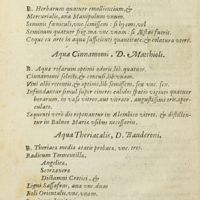 R. Herbarum quatuor emollientium, &
Mercurialis, ana Manipulum unum.
Seminis fœniculi, unc. semissem: si hyems, vel
Seminum quatuor frig. ma. ana unc. unam: si Æstas fuerit.
Coque ex arte in aqua sufficienti quantitate, & colatura utere.
Aqua Cinnamomi, D. Matthioli.
R. Aquæ rosarum optimi odoris lib. quatuor.
Cinnamomi selecti, & concusi lib. unam.
Vini albi recentis, & optimi, lib. semissem, seu unc. sex.
Infundantur simul super cineres calidos statis vigintiquatuor
horarum, in vase vitreo, aut vitreate, angustissimi oris
Sequenti verò die reponantur in Alembico vitreo, & distillen-
tur in Balneo Mariæ usibus necessariis.
Aqua Theriacalis, D. Banderoni.
R. Theriacæ mediæ ætatis probatæ, unc. tres.
Radicum Tormentillæ,
Angelicæ,
Scorzoneræ
Dictamni Cretici, &
Ligni Sassafras, ana unc. duas
Boli Orientalis, unc. unam.